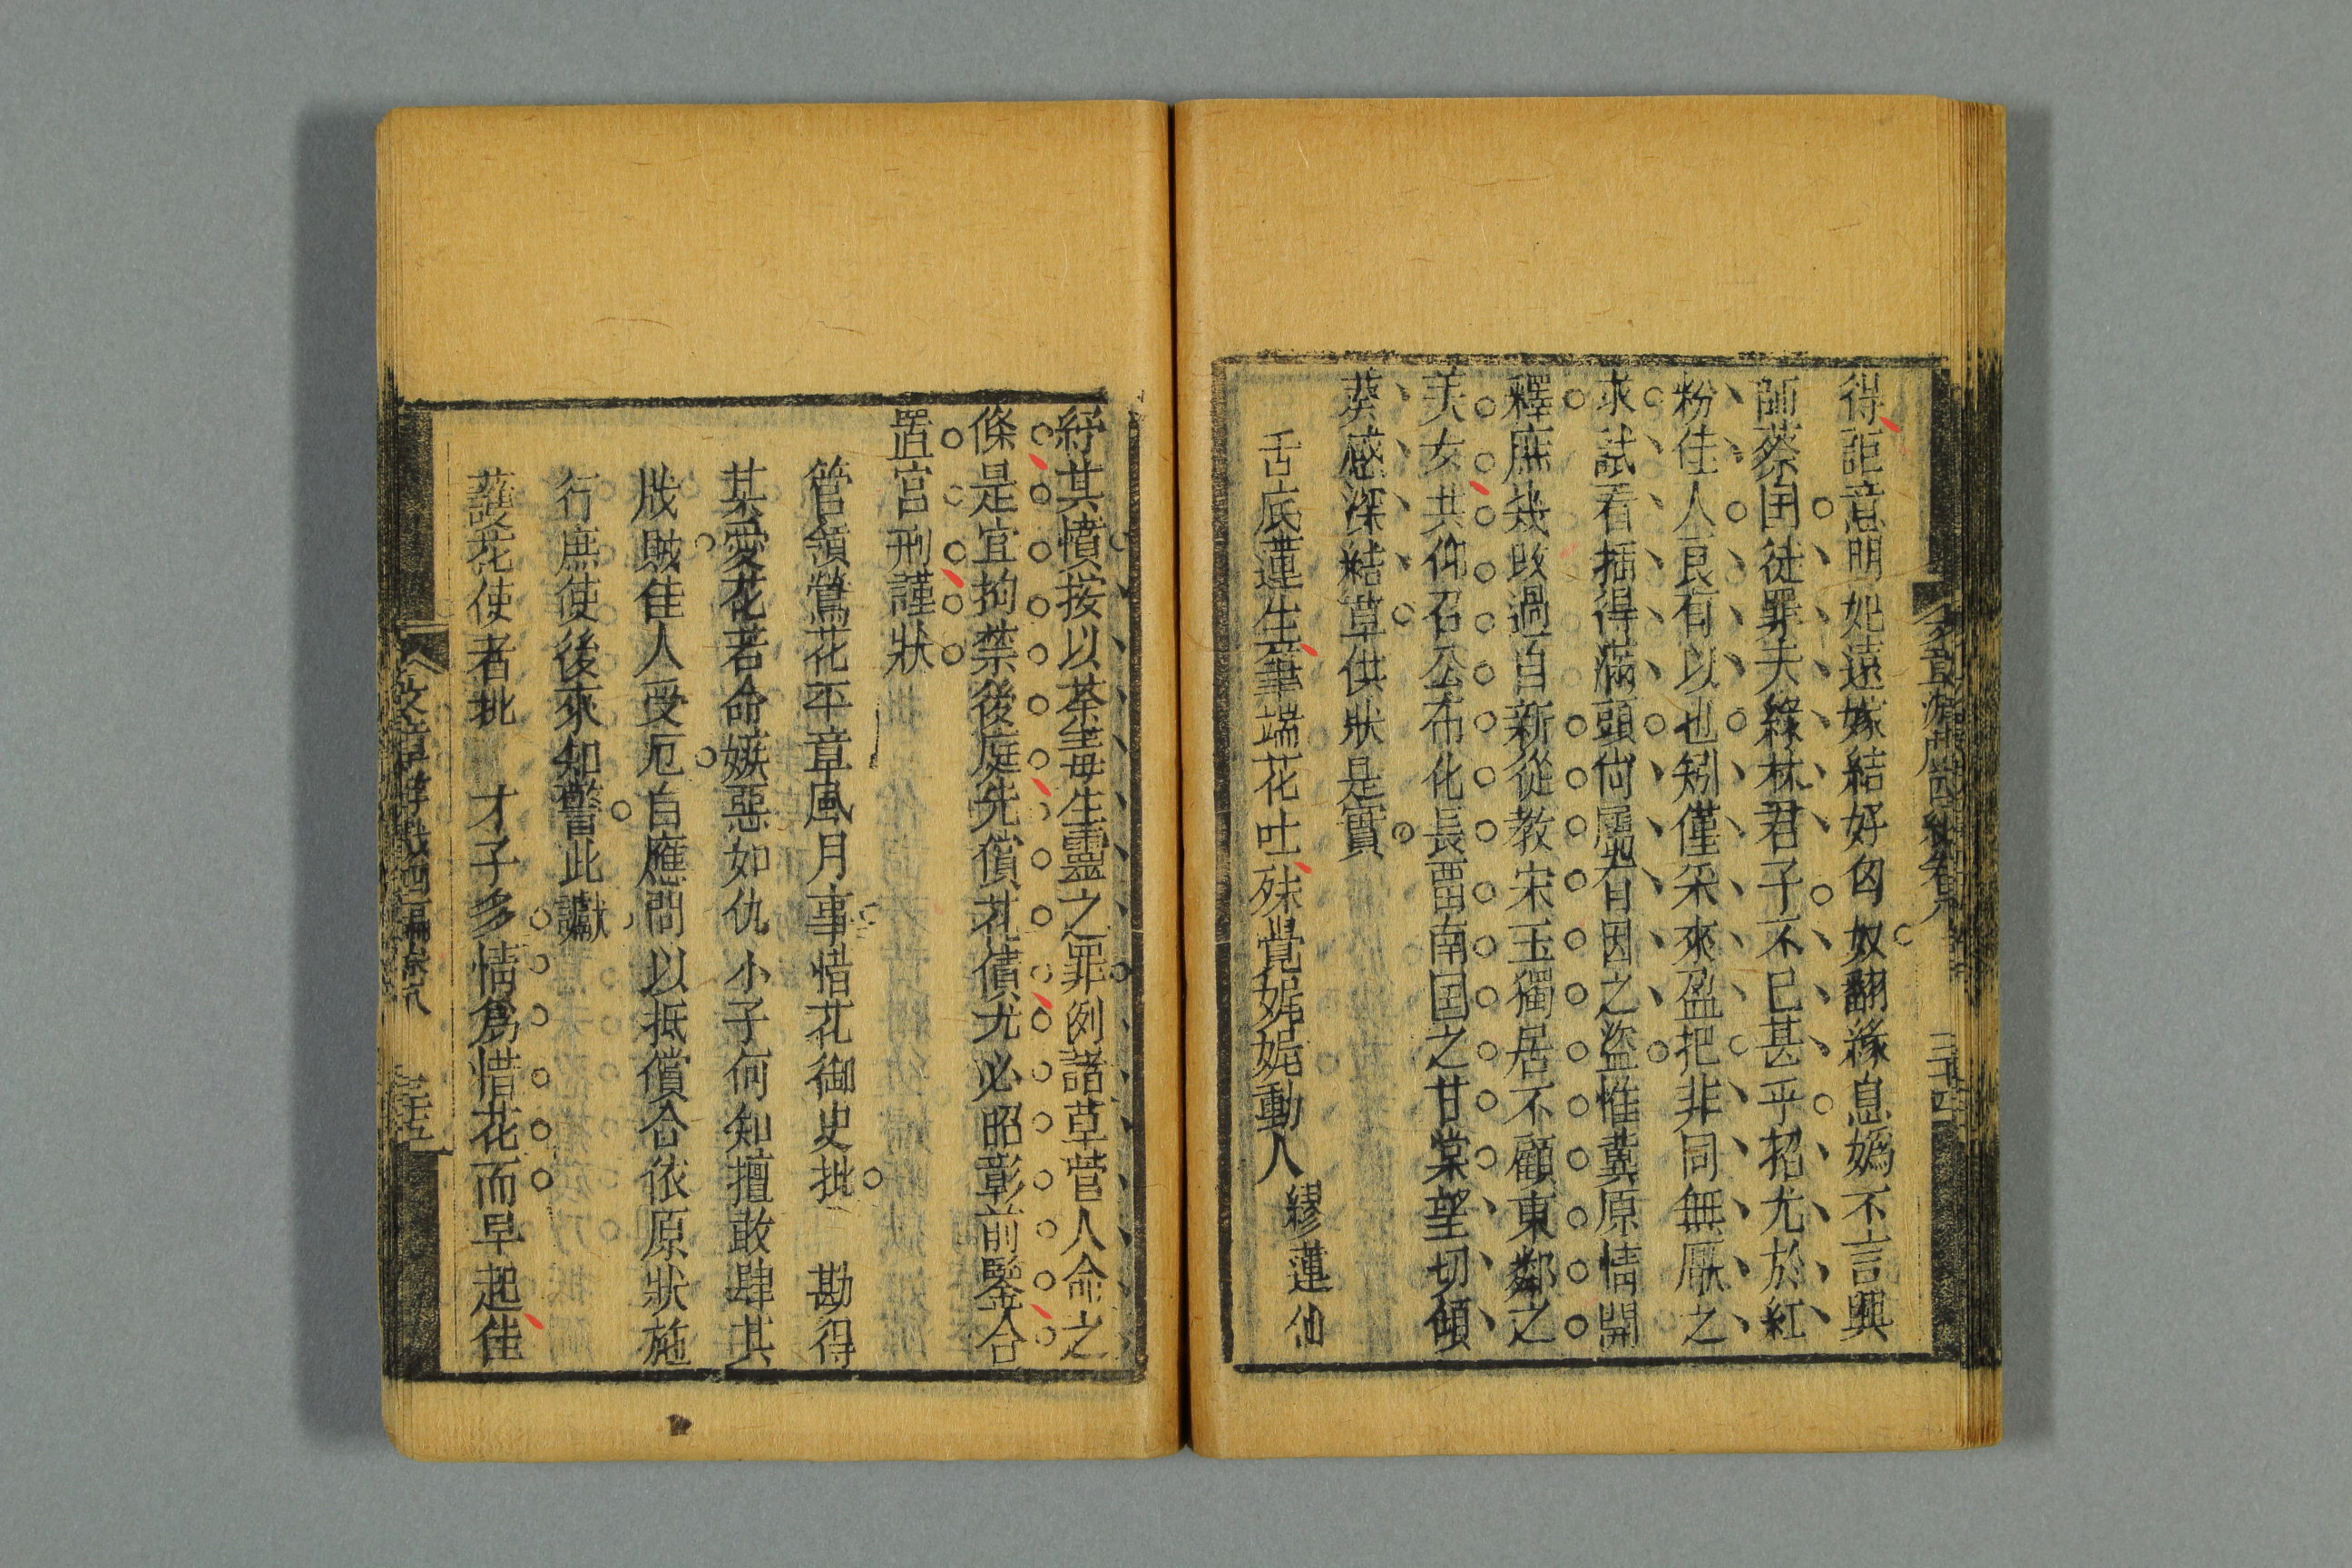 得詎意明妃遠嫁結好匈奴翻緣息嬀不言興
師蔡国徒罪夫綠林君子不已甚乎招尤於紅
粉佳人良有以也矧僅采來盈把非同無厭之
求試看插得滿頭尚屬有因之盜惟冀原情開
釋庶幾改過自新從教宋玉獨居不顧東鄰之
美女共仰召公布化長畱南国之甘棠望切傾
葵感深結草供狀是實
舌底蓮生筆端花吐殊覺娓娓動人
繆蓮仙
三十四
紓其憤按以荼毒生靈之罪例諸草菅人命之
條是宜拘禁後庭先償花債尤必昭彰前鑒合
置宮刑謹狀
管領鶯花平章風月事惜花御史批 勘得
某愛花若命嫉惡如仇小子何知擅敢肆其
戕賊佳人受厄自應問以抵償合依原狀施
行庶使後來知警此讞
護花使者批 才子多情爲惜花而早起佳
文章遊戲四編卷八
三十五